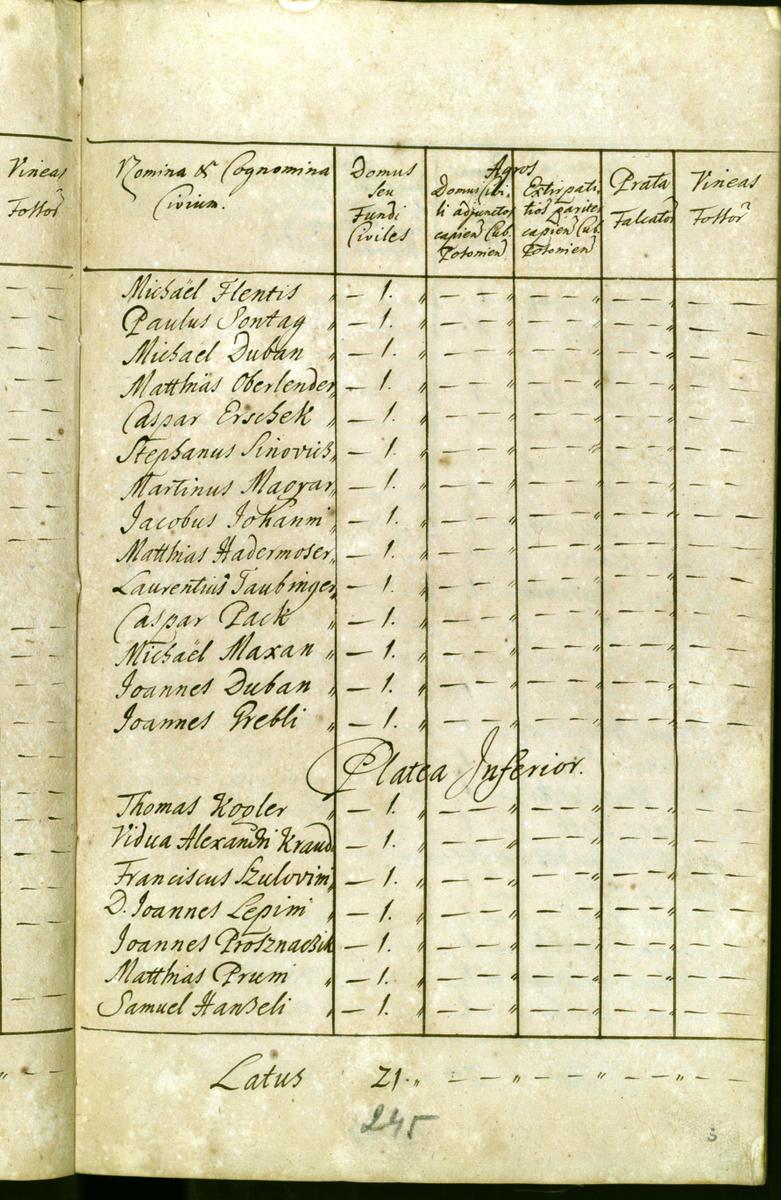 Vineas
Fossor
Nomina & Cognomina
Civium.
Domus
seu
Fundi
Civiles
Agros
Domui Civi-
li adjunctos
capien Cub.
Posonien
Extirpati-
tios pariter
capien Cub.
Posonien
Prata
Falcator
Vineas
Fossor
Michaël Flentis „ — 1. „ — — „ — — „ — — „ — —
Paulus Sontag „ — 1. „ — — „ — — „ — — „ — —
Michael Duban „ — 1. „ — — „ — — „ — — „ — —
Matthias Oberlender — 1. „ — — „ — — „ — — „ — —
Caspar Erschek „ — 1. „ — — „ — — „ — — „ — —
Stephanus Sinovich „ — 1. „ — — „ — — „ — — „ — —
Martinus Magyar „ — 1. „ — — „ — — „ — — „ — —
Jacobus Johanni „ — 1. „ — — „ — — „ — — „ — —
Matthias Hadermoser „ — 1. „ — — „ — — „ — — „ — —
Laurentius Taubinger — 1. „ — — „ — — „ — — „ — —
Caspar Pack „ — 1. „ — — „ — — „ — — „ — —
Michaël Maxan „ — 1. „ — — „ — — „ — — „ — —
Joannes Duban „ — 1. „ — — „ — — „ — — „ — —
Joannes Grebli „ — 1. „ — — „ — — „ — — „ — —
Platea Inferior.
Thomas Kogler „ — 1. „ — — „ — — „ — — „ — —
Vidua Alexandri Kraud — 1. „ — — „ — — „ — — „ — —
Franciscus Szulovini „ — 1. „ — — „ — — „ — — „ — —
D. Joannes Lepini „ — 1. „ — — „ — — „ — — „ — —
Joannes Prosznachik — 1. „ — — „ — — „ — — „ — —
Matthias Pruni „ — 1. „ — — „ — — „ — — „ — —
Samuel Hanzeli „ — 1. „ — — „ — — „ — — „ — —
Latus 21. „ — — „ — — „ — — „ — —
245